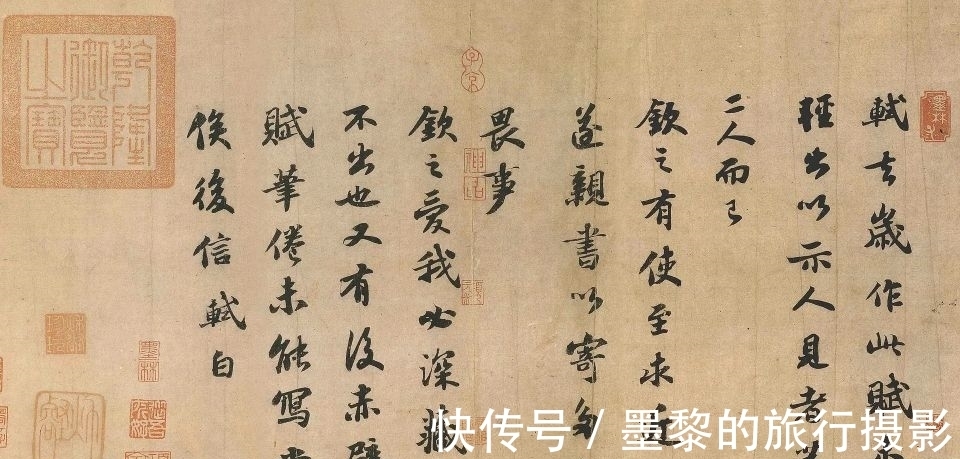 軾去歲作此賦
輕出以示人見者
二人而已
欽之有使至求近
遂親書以寄多
畏事
欽之愛我必深藏
不出也又有後赤壁
賦筆倦未能寫
俟後信軾白
乾隆御覽之寶
子京
神品
墨林
快传号 / 墨黎的旅行摄影